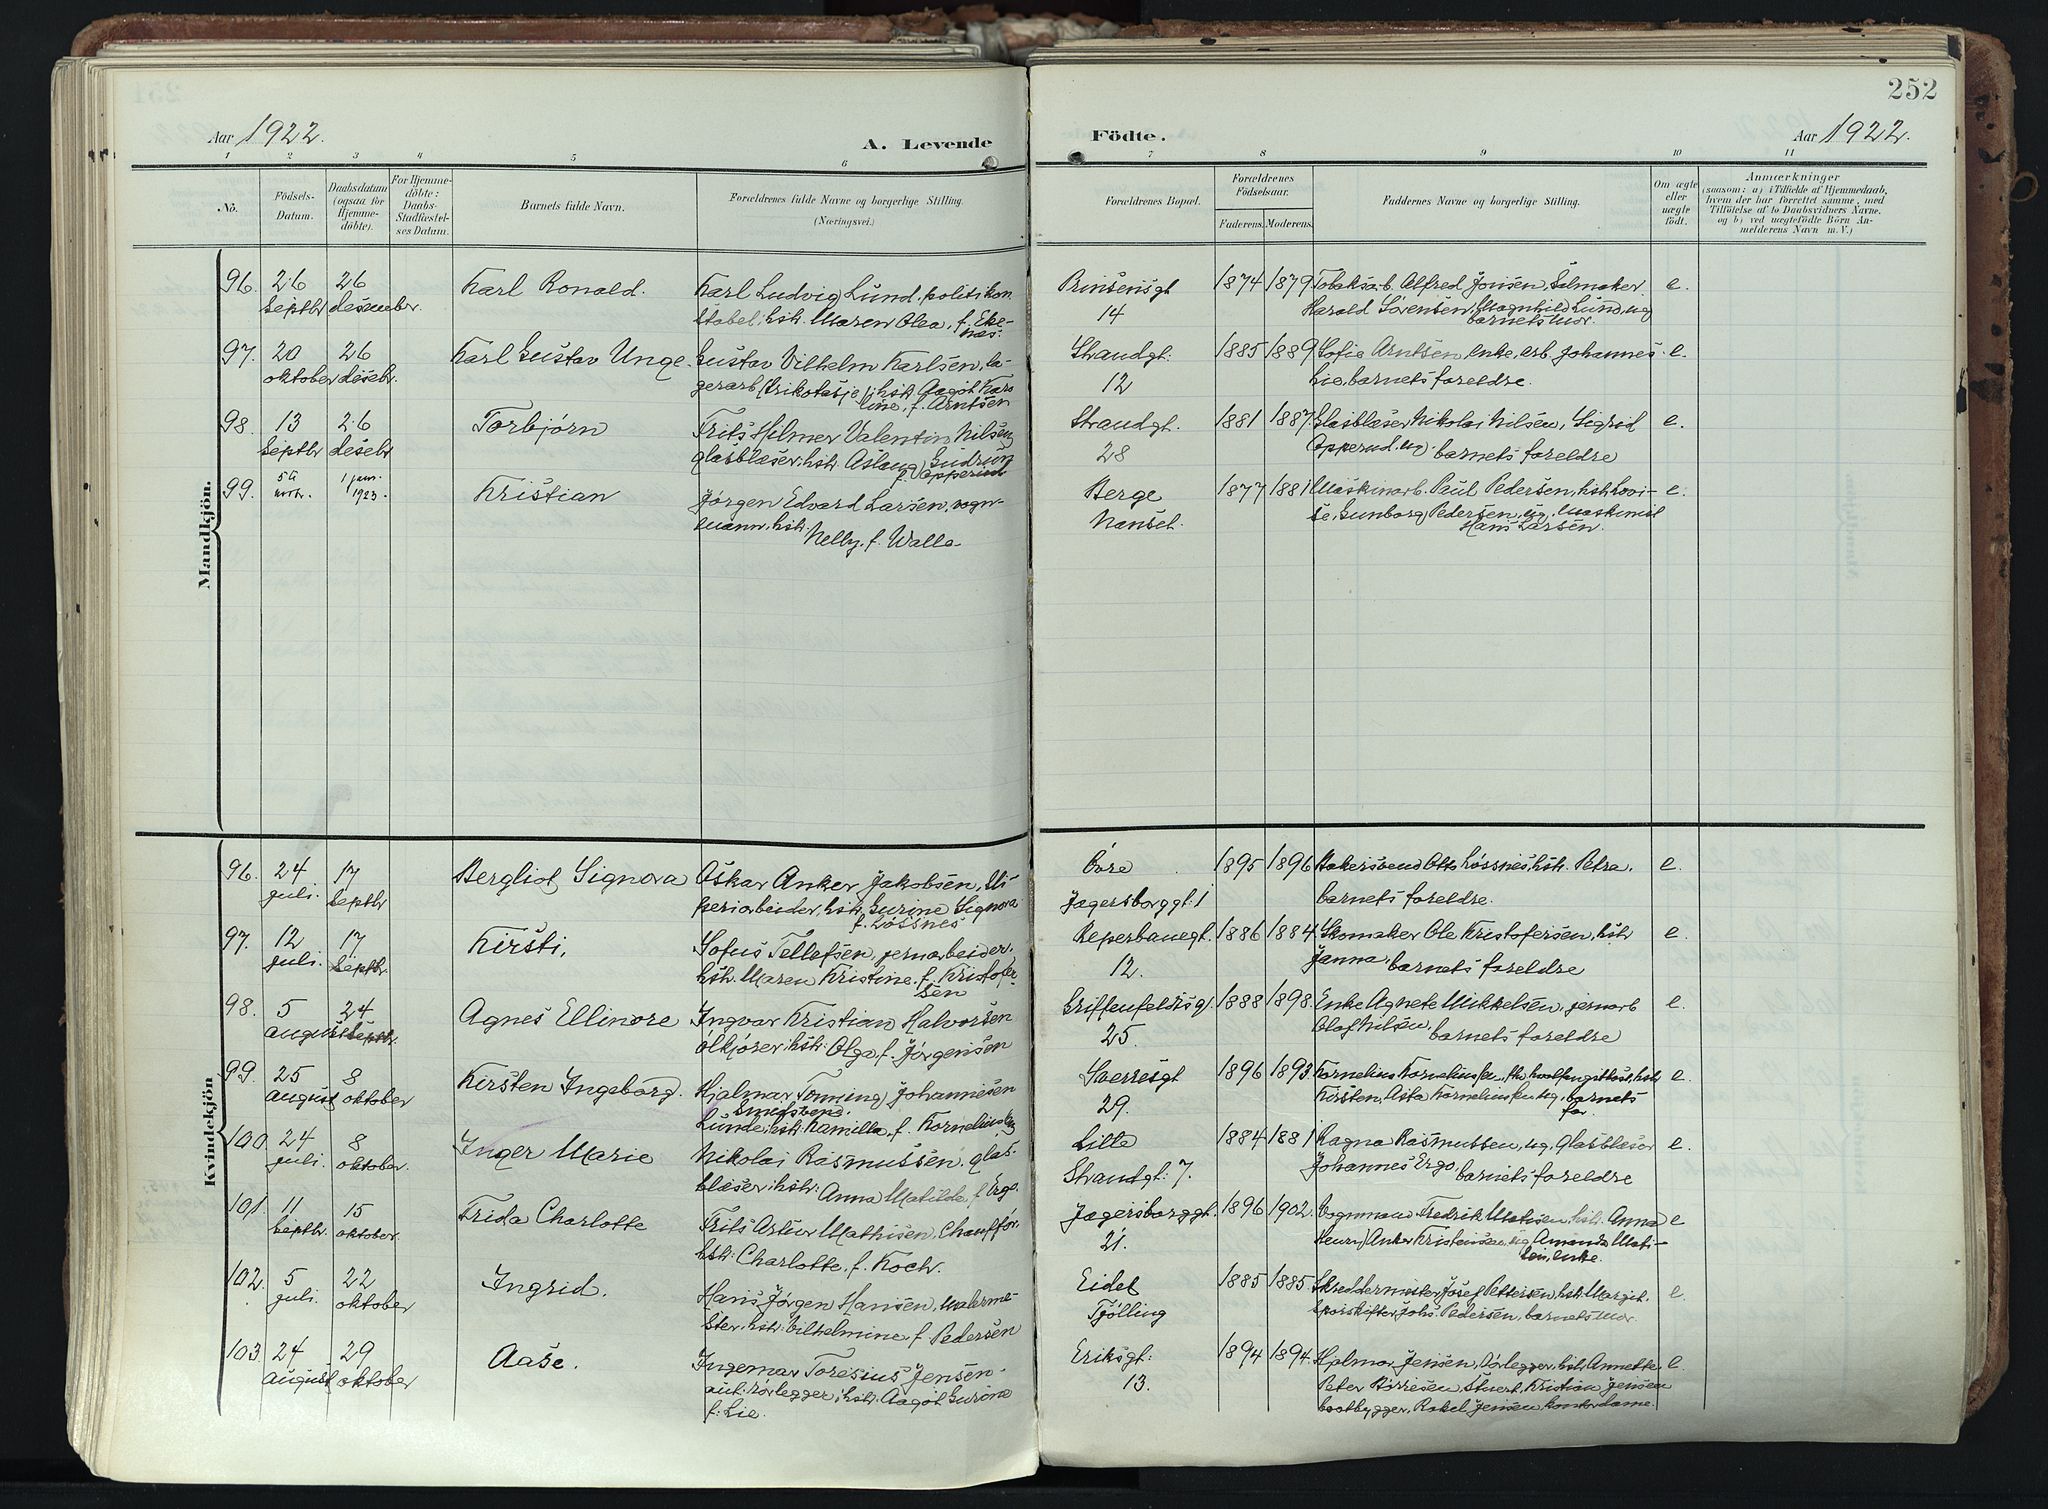 252
Aar 1922.
A. Levende
Födte.
Aar 1922.
1 2 3 4 5 6 7 8 9 10 11
No.
Födsels-Datum.
Daabsdatum (ogsaa for Hjemme-döbte).
For Hjemme-döbte: Daabs-Stadfæstel-ses Datum.
Barnets fulde Navn.
Forældrenes fulde Navne og borgerlige Stilling.
(Næringsvei.)
Forældrenes Bopæl.
Forældrenes Födselsaar.
Faderens. Moderens.
Faddernes Navne og borgerlige Stilling.
Om ægte eller uægte födt.
Anmærkninger
(saasom: a) i Tilfælde af Hjemmedaab,
hvem der har forrettet samme, med
Tilföielse af to Daabsvidners Navne.
og b) ved uægtefödte Börn An-
melderens Navn m. V.)
Mandkjön.
96. 26 septbr 26 desember. Karl Ronald. Karl Ludvig Lund, politikon-
stabel, hstr. Maren Olea, f. Eke-
nes. Prinsensgt 14 1874 1879 Tobaksarb. Alfred Jonsen, Salmaker
Harald Sörensen, Magnhild Lund, og
barnets mor. e.
97. 20 oktober 26 desebr. Karl Gustav Unge. Gustav Vilhelm Karlsen, la-
gerarb (trikotasje), hstr. Aagot Karo
line, f. Arntsen Strandgt: 12 1885 1889 Sofie Arntsen, enke, arb. Johannes
Lie, barnets foreldre. e.
98. 13 septbr 26 desebr Torbjörn Frits Hilmer Valentin Nilsen
glasblæser, hstr. Aslaug Gudrun
f. Opperud Strandgt. 28 1881 1887 Glasblæser Nikolai Nilsen, Sigrid
Opperud, og barnets foreldre e.
99. 5te novbr. 1 jan. 1923. Kristian Jörgen Edvard Larsen, vogn-
mann, hstr.
Nelly, f. Walle Berge Nanset. 1877 1881 Maskinarb. Paul Pedersen, hstr. Lovi-
se, Gunborg Pedersen, og Maskinist
Hans Larsen. e.
Kvindekjön
96. 24 juli. 17 septbr Bergliot Signora Oskar Anker Jakobsen,
periarbeider, hstr. Gurine Signora
f. Lössnes Övre Jegersborggt: 1 1895 1896 Bakersvend Otto Lössnes, hstr. Petra.
barnets foreldre. e.
97. 12 juli. 17 septbr. Kirsti, Sofus Tellefsen, jernarbeider,
hstr. Maren Kristine, f. Kristofer-
sen Reperbanegt. 12. 1886 1884 Skomaker Ole Kristofersen, hstr
Janna, barnets foreldre e.
98. 5 august 24 septbr. Agnes Ellinore Ingvar Kristian Halvorsen
ölkjörer, hstr: Olga, f. Jörgensen Griffenfeldtsgt 25. 1888 1898. Enke Agnete Mikkelsen, jernarb
Olaf Nilsen, barnets foreldre e
99. 25 august 8 oktober Kirsten Ingeborg. Hjalmar Tönning Johannesen
smedsvend.
Lunde, hstr. Kamilla, f. Korneliussen Sverresgt 29. 1896 1893. Kornelius Korneliussen, fhv. hvalfangstbest, hstr
Kirsten, Asta Korneliussen og, barnets
far. e.
100. 24 juli. 8 oktober. Inger Marie Nikolai Rasmussen, glas-
blæser, hstr: Anna Matilde, f. Ergo. Lille Strandgt: 7. 1884 1881 Ragna Rasmussen, og, glasblæser
Johannes Ergo, barnets foreldre e.
101. 11 septbr. 15 oktober. Frida Charlotte Frits Artur Mathisen, Chauffför,
hstr: Charlotte, f. Koch. Jegersborggt. 21. 1896 1902. Vognmand Fredrik Matisen, hstr. Anna
Henry Anker Kristensen, og Amanda Mati-
sen, enke. e
102. 5 juli. 22 oktober Ingrid. Hans Jörgen Hansen, malerme-
ster, hstr. Vilhelmine, f. Pedersen Eidet Tjölling 1885 1885. Skreddermester Josef Pettersen, hstr Margit.
sporskifter Johs. Pedersen, barnets mor. e.
103. 24 august 29 oktober Aase. Ingemar Toresius Jensen
aut. rörlegger, hstr. Aagot Gurine
f: Lie. Eriksgt: 13. 1894 1894. Hjalmar Jensen, rörlegger, hstr Annette.
Peter Börresen, Stuert, Kristian Jensen
baatbygger, Rakel Jensen, kontordame. e.